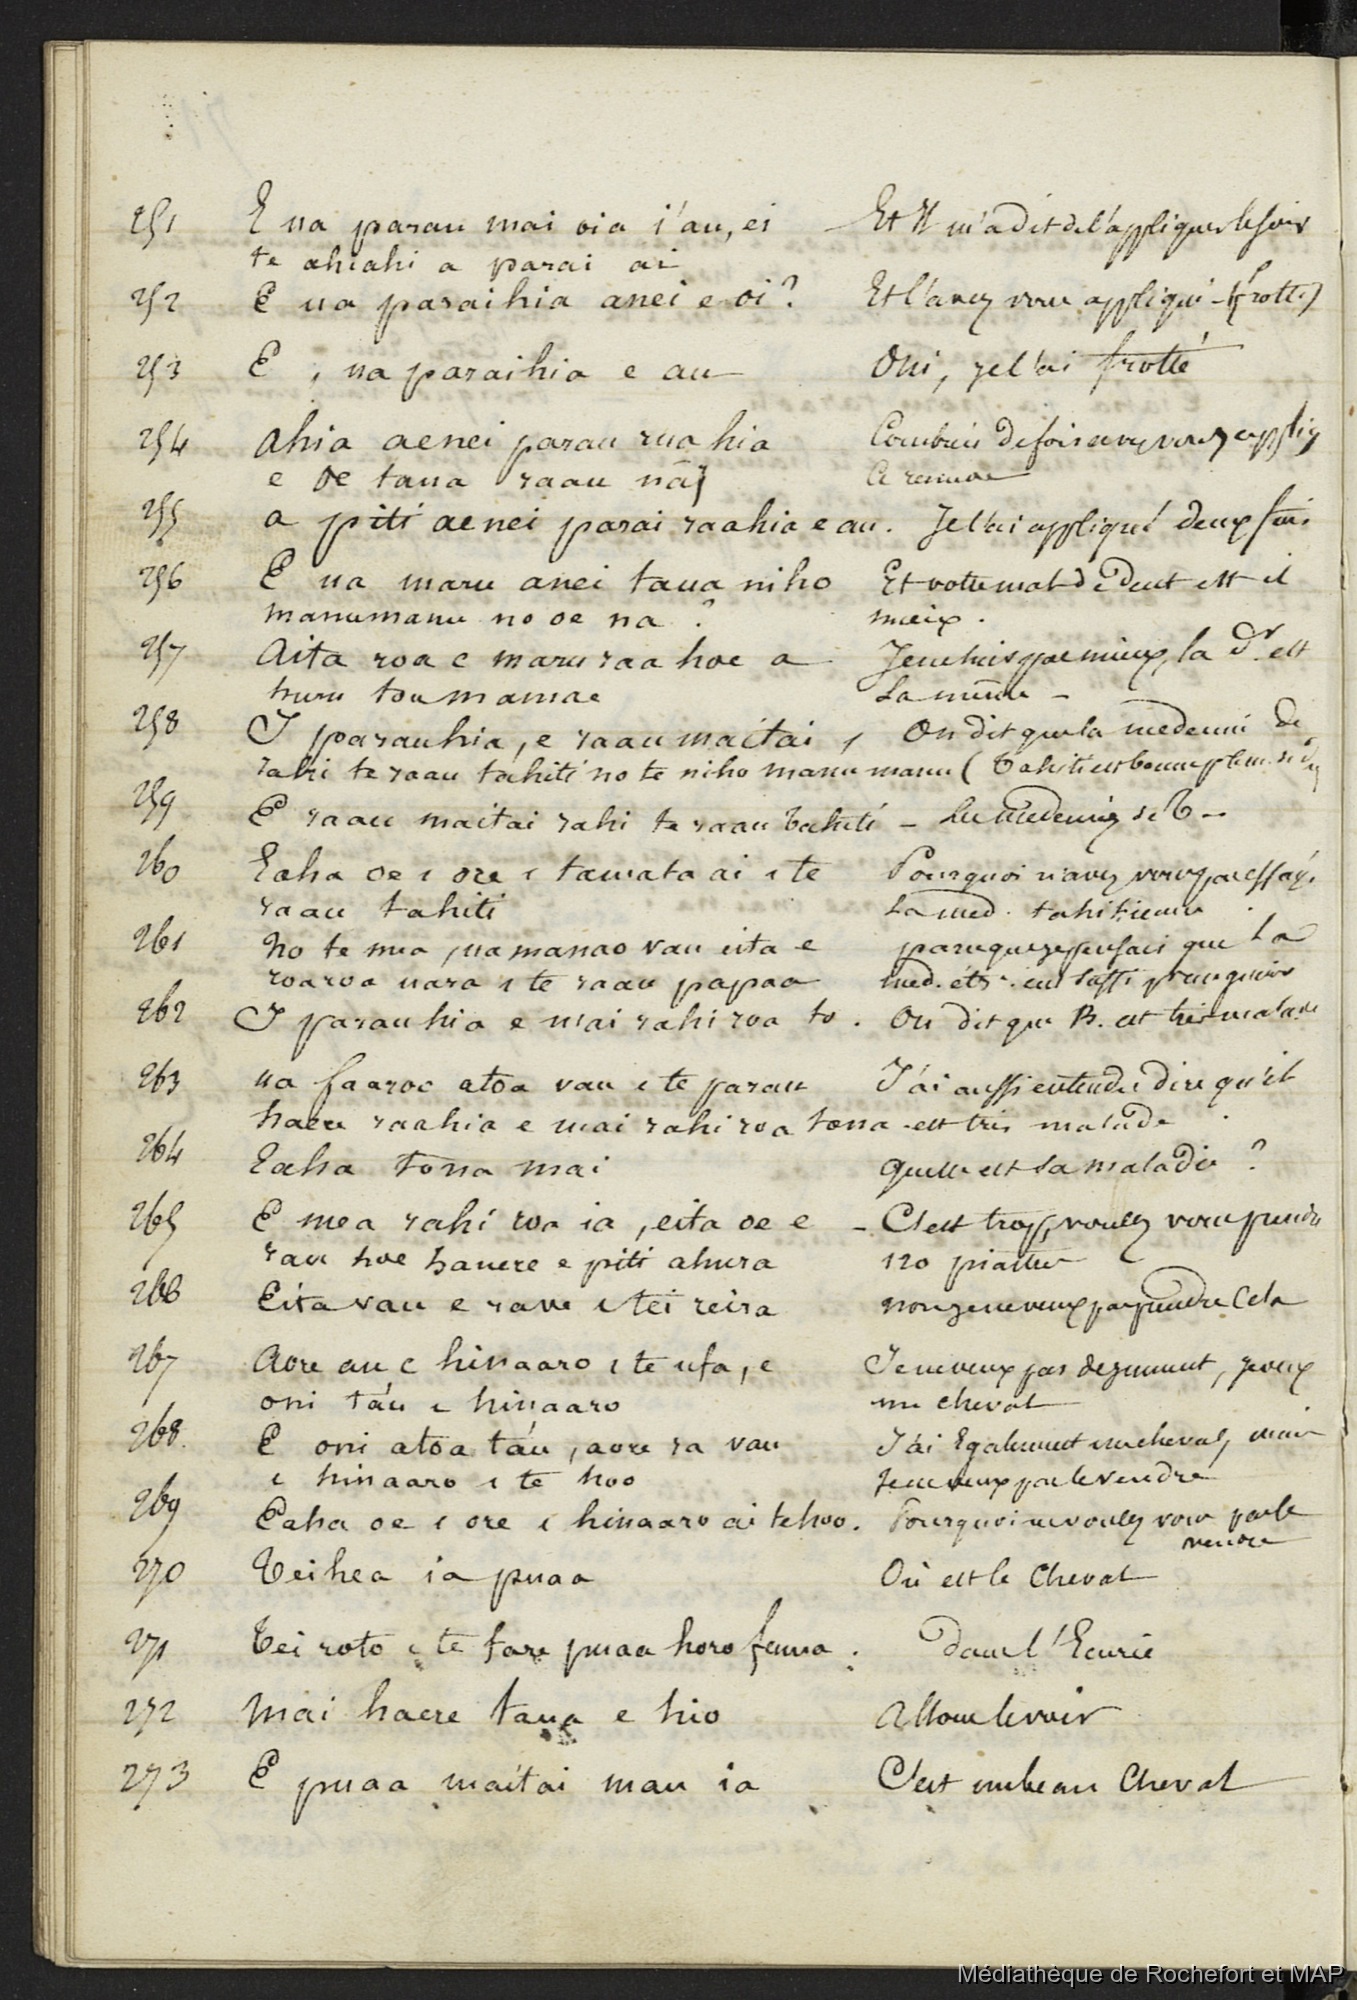 251 E ua parau mai oia i'au, ei Et Il m'a dit de l'appliquer le soir
te ahiahi a parai ai
252 E ua paraihia anei e oi? Et l'avez vous appliqué - (frotté)
253 E, ua paraihia e au Oui, je l'ai frotté
254 Ahia aenei parau raa hia Combien de fois avez vous appliq
e oe taua raau na Ce remède
255 a piti aenei parai raahia e au. Je l'ai appliqué deux fois
256 E ua maru anei taua niho Et votre mal de Dent est il
manumanu no oe na? mieux.
257 Aita roa e maru raa hoe a Je ne suis pas mieux, la dr. est
huru tou mamae la même -
258 I parauhia, e raau maitai, On dit que la medecine de
rahi te raau tahiti no te niho manumanu (Tahiti est bonne
259 E raau maitai rahi te raau Tahiti - La medecine de T -
260 Eaha oe i ore i tamata ai i te Pourquoi n'avez vous pas essayé
raau tahiti la med. tahitienne.
261 No te mea, ua manao vau eita e parceque je pensais que la
roaroa uara i te raau papaa med.
262 I parauhia e mai rahi roa to. On dit que B. est très malade
263 ua faaroo atoa vau i te parau J'ai aussi entendu dire qu'il
haere raahia e mai rahi roa tona est très malade
264 Eaha tona mai quelle est sa maladie?
265 E mea rahi roa ia, eita oe e - C'est trop, voulez vous prendre
rau hoe hanere e piti ahura 120 piastres
266 Eita vau e rave i tei reira non je ne veux pas prendre Cela
267 Aore au e hinaaro i te ufa, e Je ne veux pas de jument, je veux
oni ta'u e hinaaro un cheval
268. E oni atoa ta'u, aore ra vau J'ai Egalement un cheval, mais
i hinaaro i te hoo je ne veux pas le vendre
269 Eaha oe i ore i hinaaro ai te hoo. Pourquoi ne voulez vous pas le
vendre
270 Teihea ia puaa Où est le Cheval
271 Tei roto i te fare puaa horo fenua. dans l'Ecurie
272 Mai haere taua e hio Allons le voir
273 E puaa maitai mau ia C'est un beau Cheval
Médiathèque de Rochefort et MAP